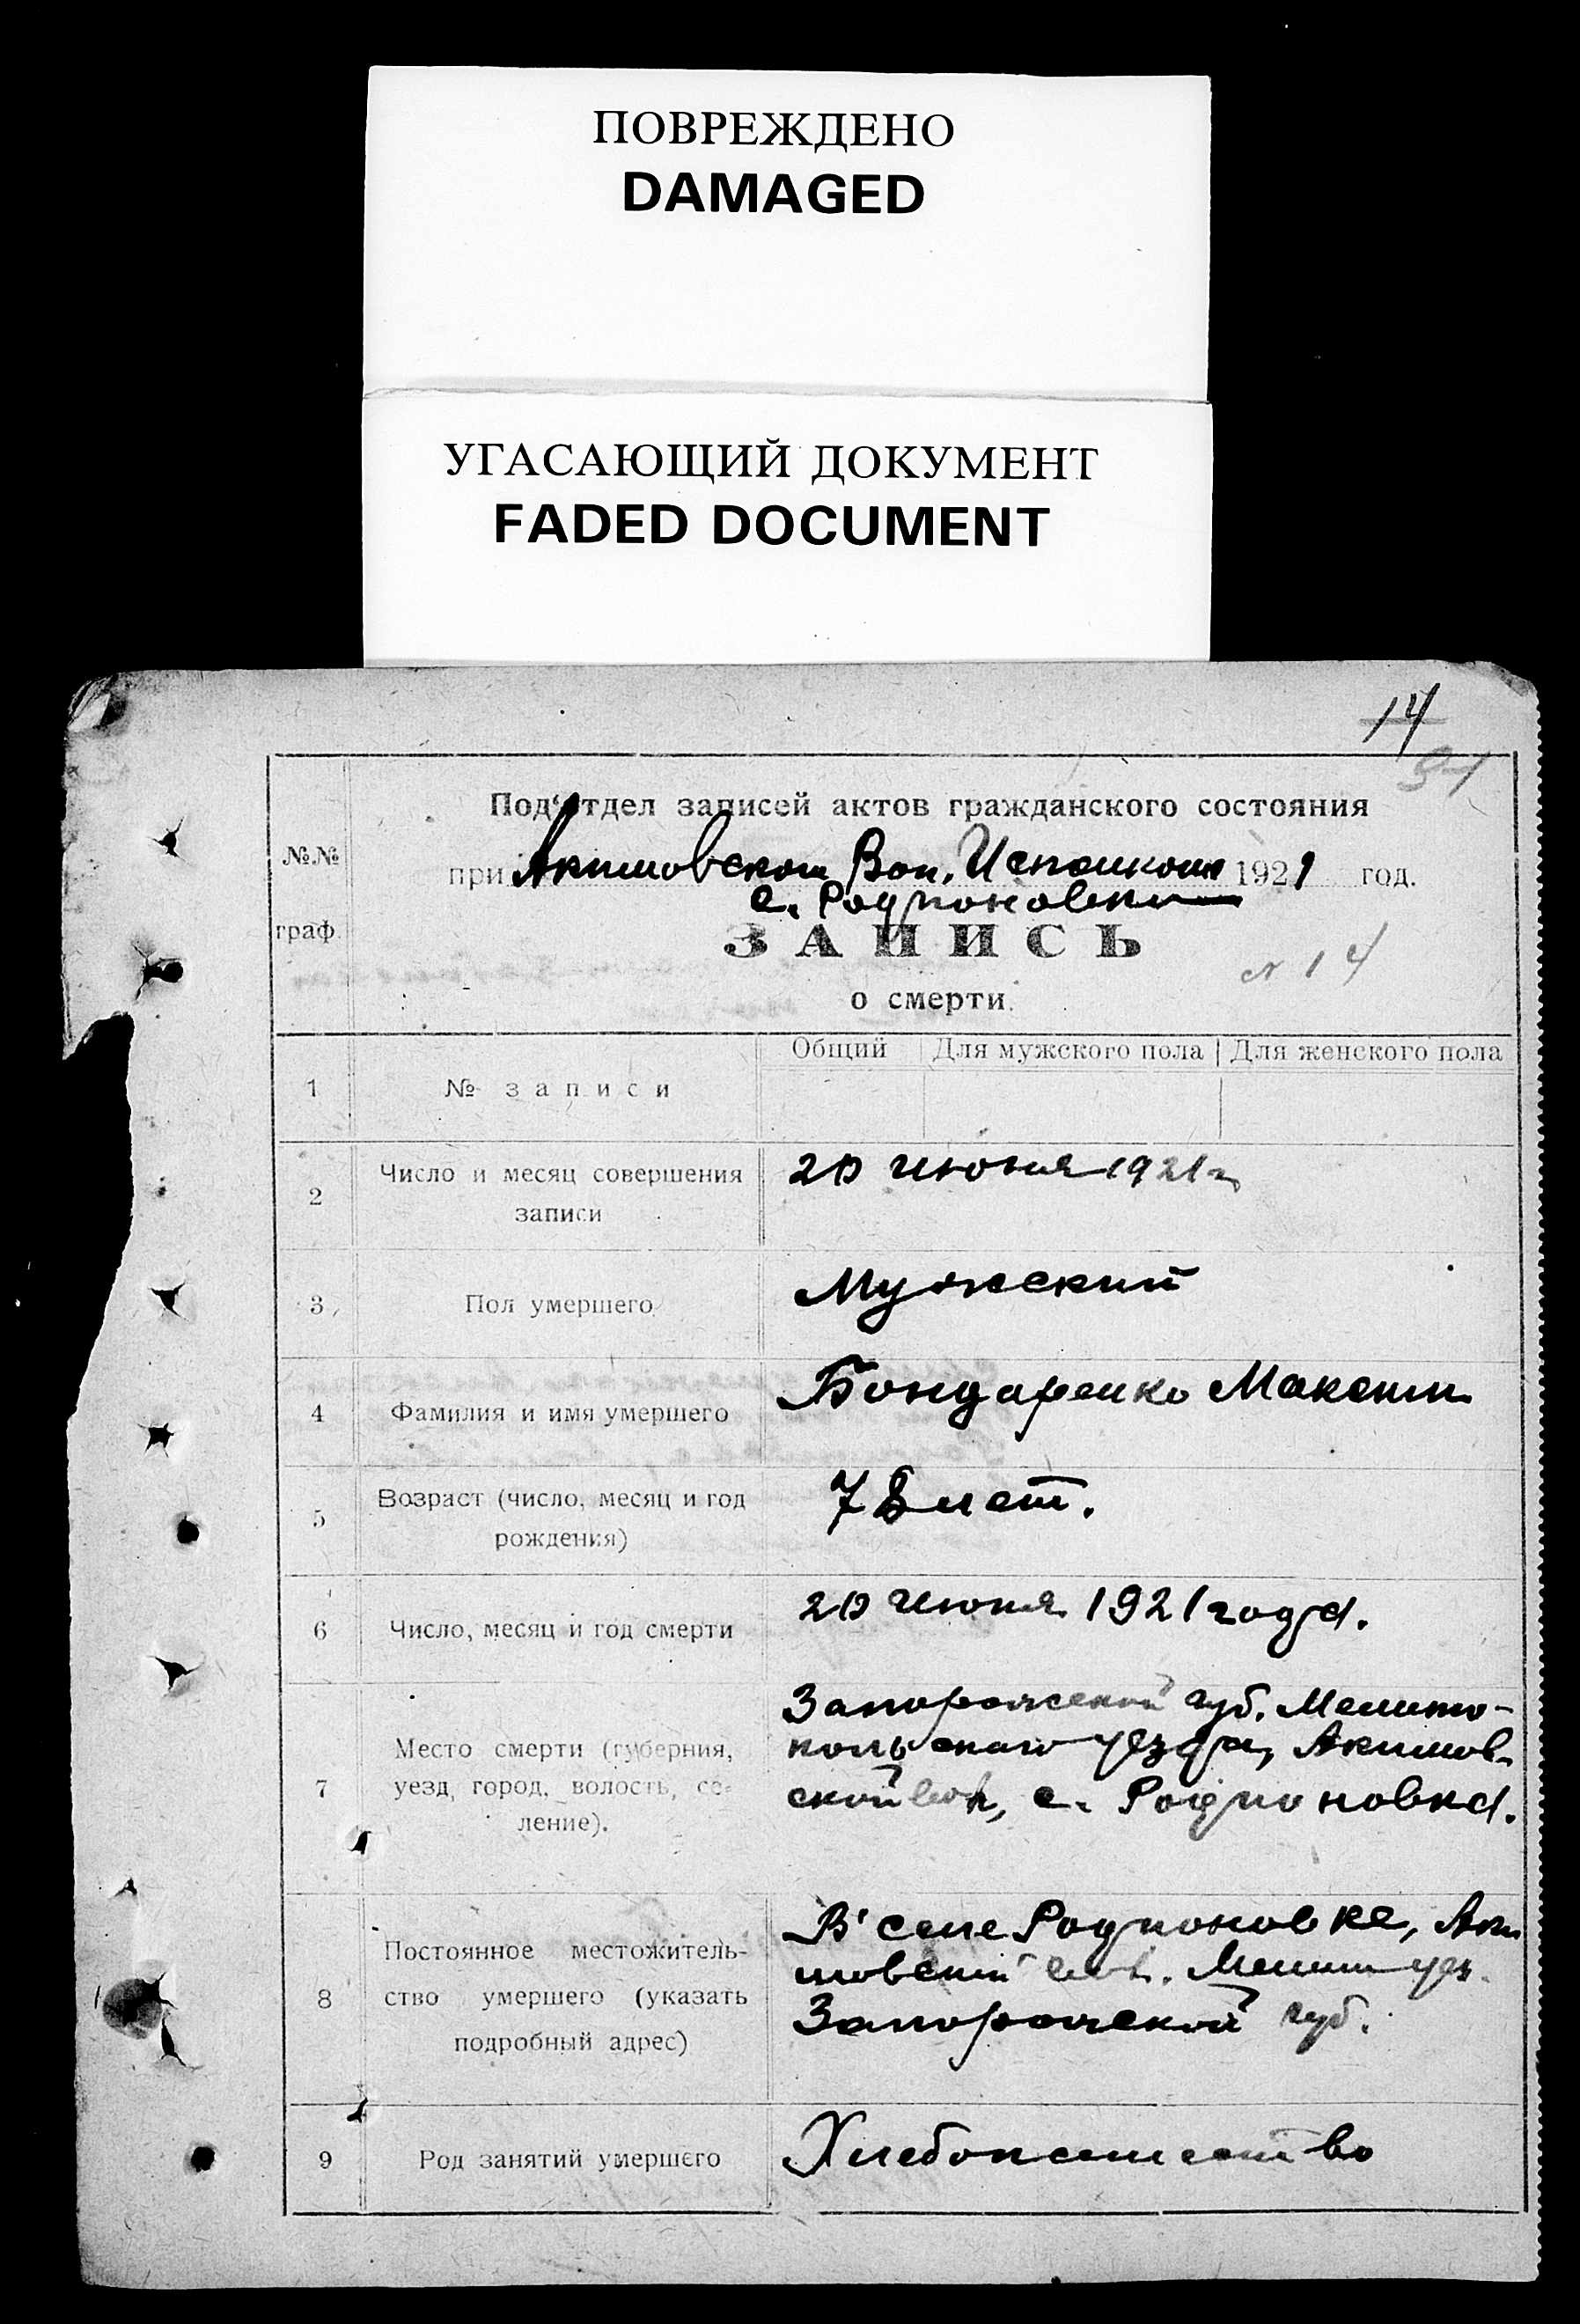 ПОВРЕЖДЕНО
DAMAGED
УГАСАЮЩИЙ ДОКУМЕНТ
FADED DOCUMENT
14
91
№№
граф.
Под'отдел записей актов гражданского состояния
при Акимовском Вол. Исполкоме 1921 год.
с. Родионовки
ЗАПИСЬ
№ 14
о смерти.
Общий Для мужского пола Для женского пола
1 № записи
2 Число и месяц совершения
записи
20 июня 1921 г.
3 Пол умершего
Мужский
4 Фамилия и имя умершего
Бондаренко Максим
5 Возраст (число, месяц и год
рождения)
78 лет.
6 Число, месяц и год смерти
20 июня 1921 года.
7 Место смерти (губерния,
уезд, город, волость, се-
ление).
Запорожской губ. Мелито-
польского уезда, Акимов-
ской вол, с. Родионовка.
8 Постоянное местожитель-
ство умершего (указать
подробный адрес)
В селе Родионовке, Аки
мовской вол. Мелит уез.
Запорожской губ.
9 Род занятий умершего
Хлебопашество